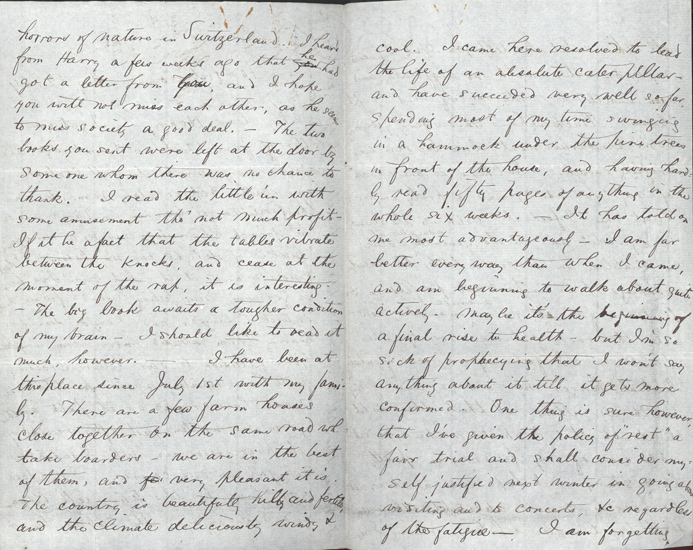 horrors of nature in Switzerland. I heard
from Harry a few weeks ago that he had
got a letter from you, and I hope
you will not miss each other, as he seems
to miss society a good deal. — The two
books you sent were left at the door by
some one whom there was no chance to
thank. I read the little 'un with
some amusement tho' not much profit —
If it be a fact that the tables vibrate
between the knocks, and cease at the
moment of the rap, it is interesting.
— The big book awaits a tougher condition
of my brain — I should like to read it
much, however. — I have been at
this place since July 1st with my fami-
ly. There are a few farm houses
close together on the same road wh.
take boarders — we are in the best
of them, and very pleasant it is.
The country is beautifully hilly and fertile
and the climate deliciously windy &
cool. I came here resolved to lead
the life of an absolute caterpillar —
and have succeeded very well so far,
spending most of my time swinging
in a hammock under the pine trees
in front of the house, and having hard-
ly read fifty pages of anything in the
whole six weeks. — It has told on
me most advantageously — I am far
better every way than when I came,
and am beginning to walk about quite
actively. Maybe it's the beginning of
a final rise to health — but I'm so
sick of prophecying that I won't say
anything about it till it gets more
confirmed. One thing is sure however,
that I've given the policy of "rest" a
fair trial and shall consider my-
self justified next winter in going about
visiting and to concerts, &c regardless
of the fatigue — I am forgetting